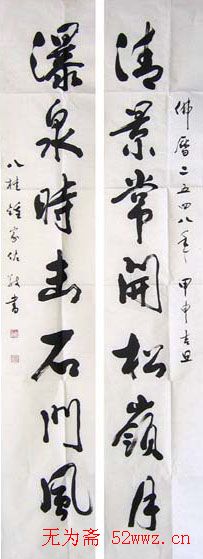 佛曆二五四八年 甲申吉旦
清景常開松嶺月
瀑泉時出石門風
八桂鍾家佐敬書
无为斋 52wwz.cn